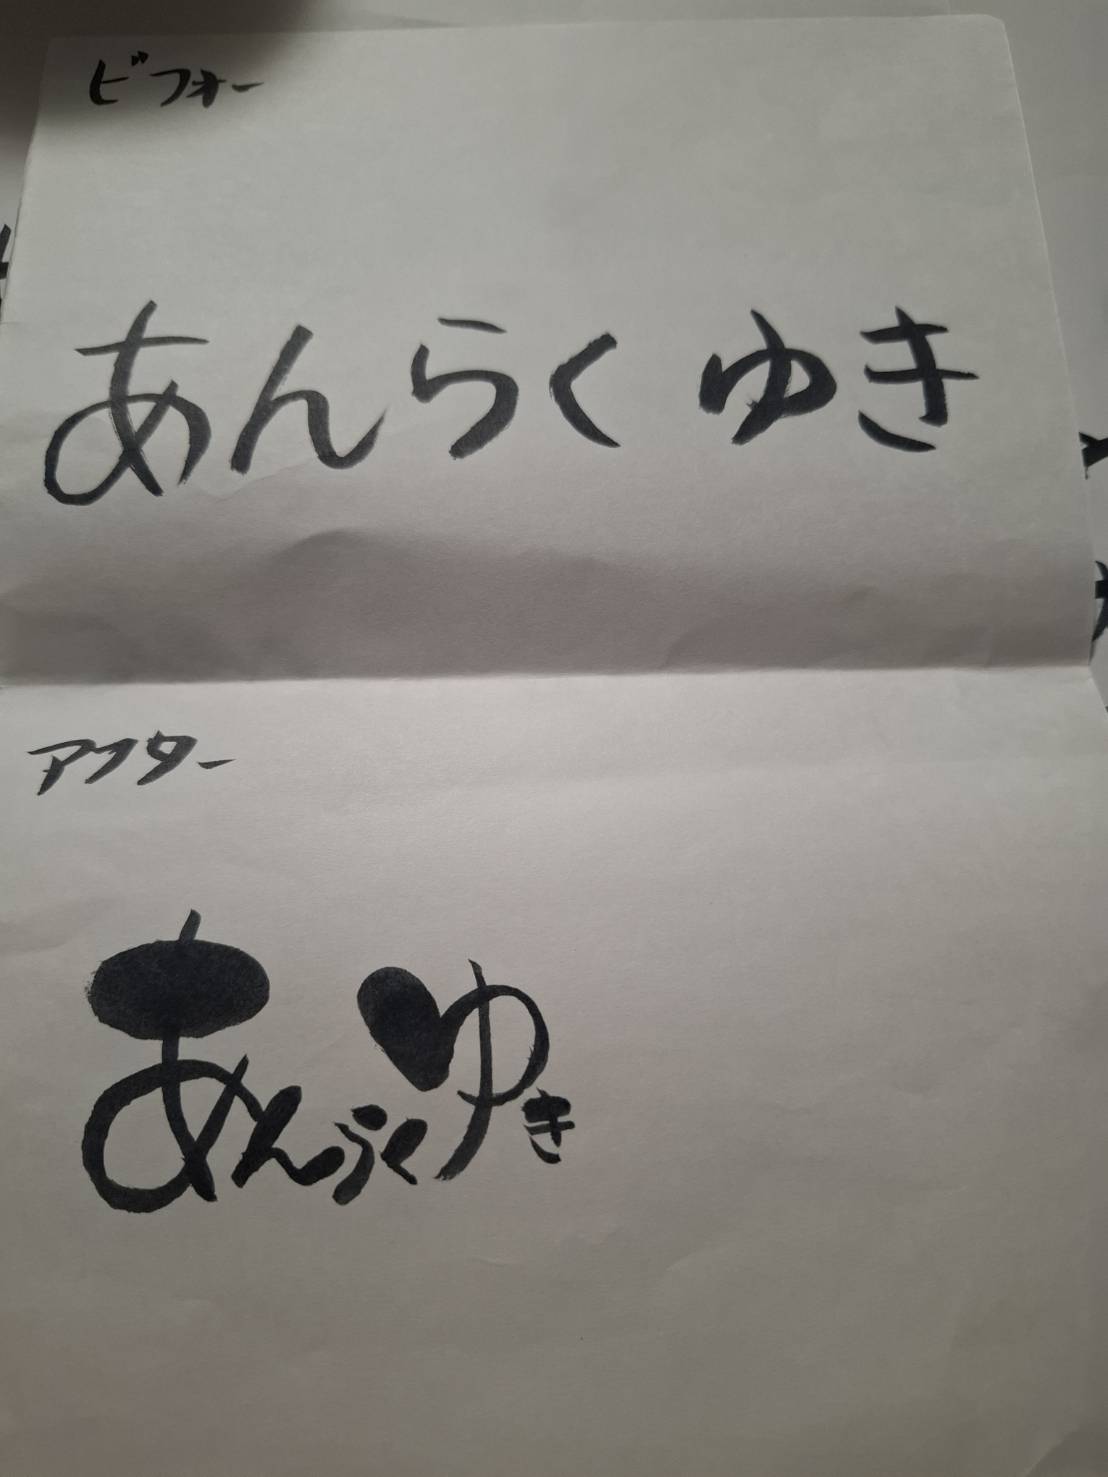 ビフォー
あんらく ゆき
アフター
あんらくゆき